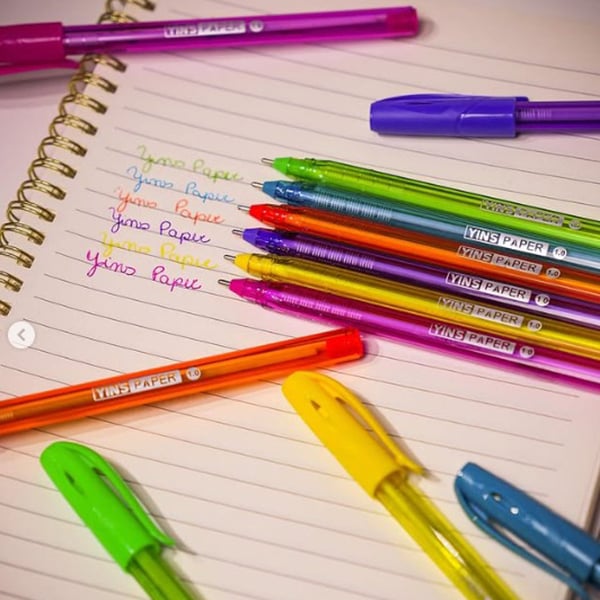 YINS PAPER 1.0
Yins Paper
Yins Paper
Yins Paper
Yins Paper
Yins Paper
Yins Paper
YINS PAPER 1.0
YINS PAPER 1.0
YINS PAPER 1.0
YINS PAPER 1.0
YINS PAPER 1.0
YINS PAPER 1.0